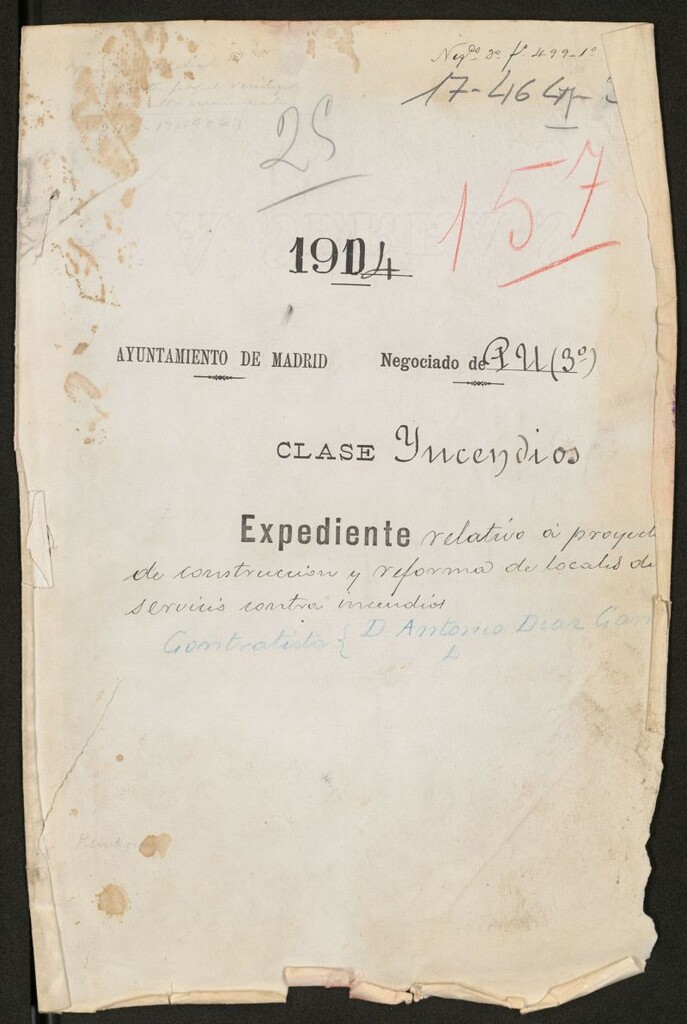 Negdo 3º fº 499-1º
17-464-
25
157
1904
AYUNTAMIENTO DE MADRID Negociado de P U (3º)
CLASE Yncendios
Expediente relativo á proyect
de construccion y reforma de locales de
servicio contra incendios
Contratista { D Antonio Diaz